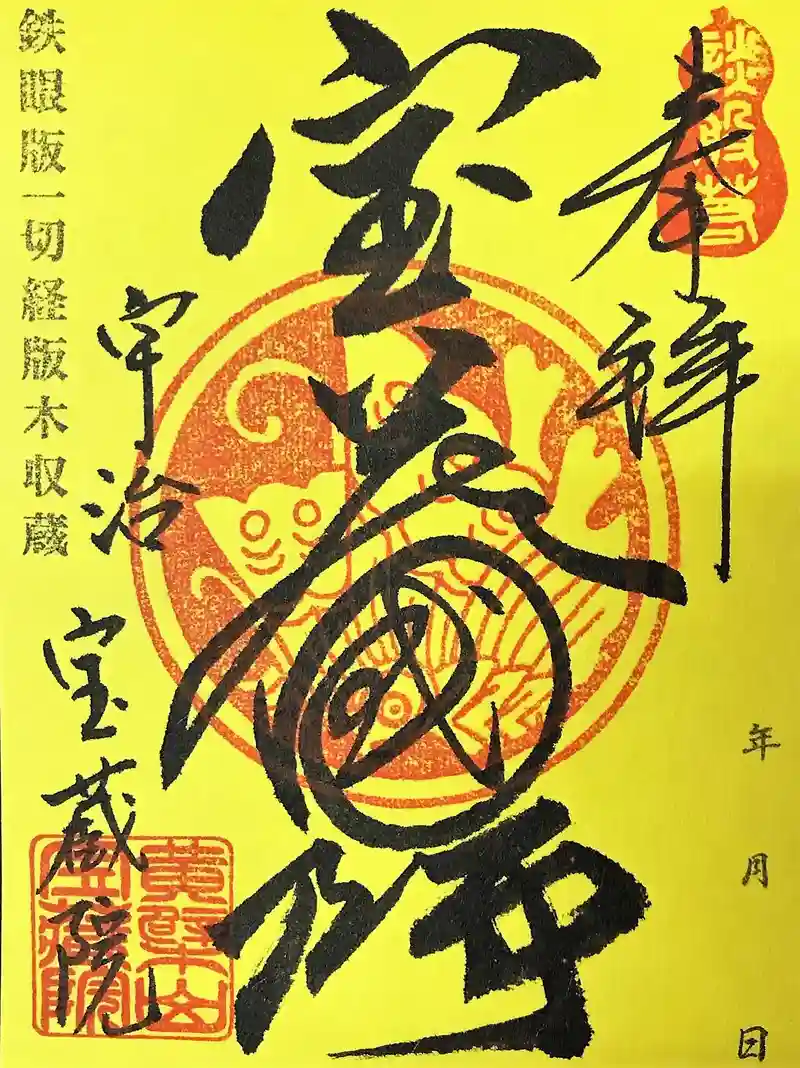 奉拝
年 月 日
宝蔵國師
宇治 宝蔵院
黄檗山
宝蔵院
鉄眼版一切経版木収蔵